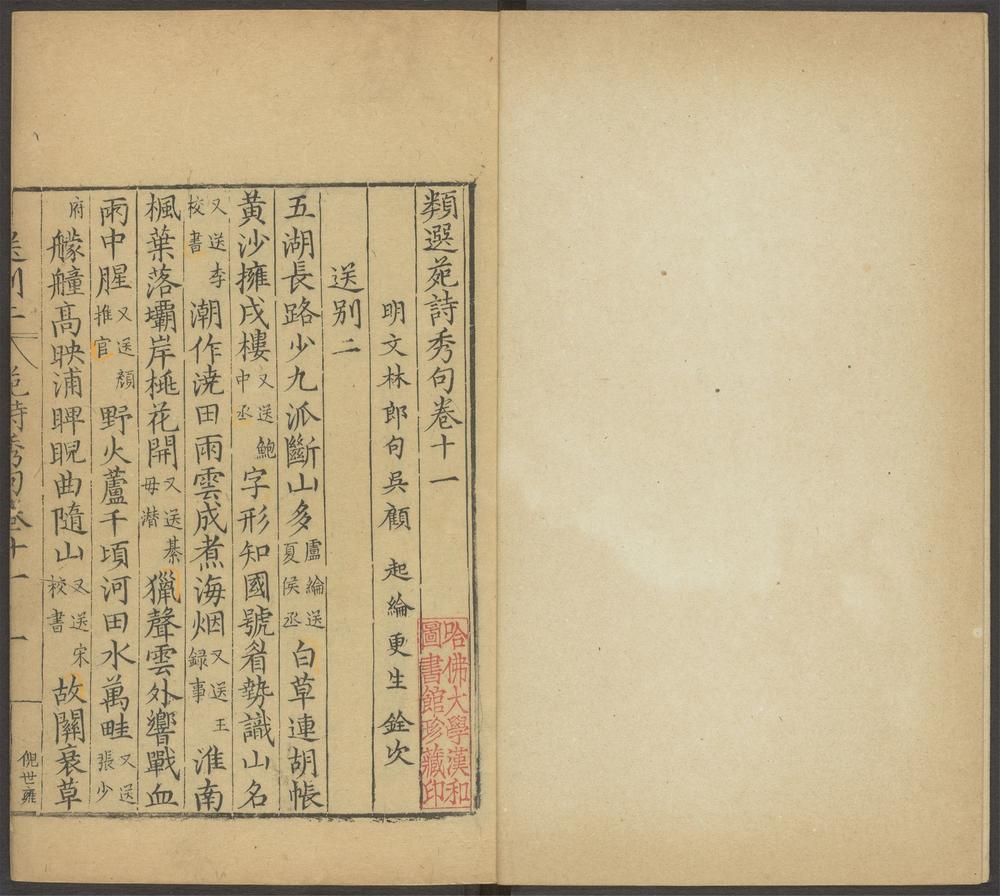 類選苑詩秀句卷十一
哈佛大學漢和
圖書館珍藏印
明文林郎句吳顧 起綸更生 銓次
送別二
五湖長路少九派斷山多盧綸送夏侯丞白草連胡帳
黃沙擁戍樓又送鮑中丞字形知國號看勢識山名
又送李校書潮作澆田雨雲成煮海烟又送王録事淮南
楓葉落壩岸桃花開又送綦毋潜獵聲雲外響戰血
雨中腥又送顏推官野火蘆千頃河田水萬畦又送張少
府艨艟高映浦睥睨曲隨山又送宋校書故關衰草
送別二 苑詩秀句卷十一 一 倪世雍